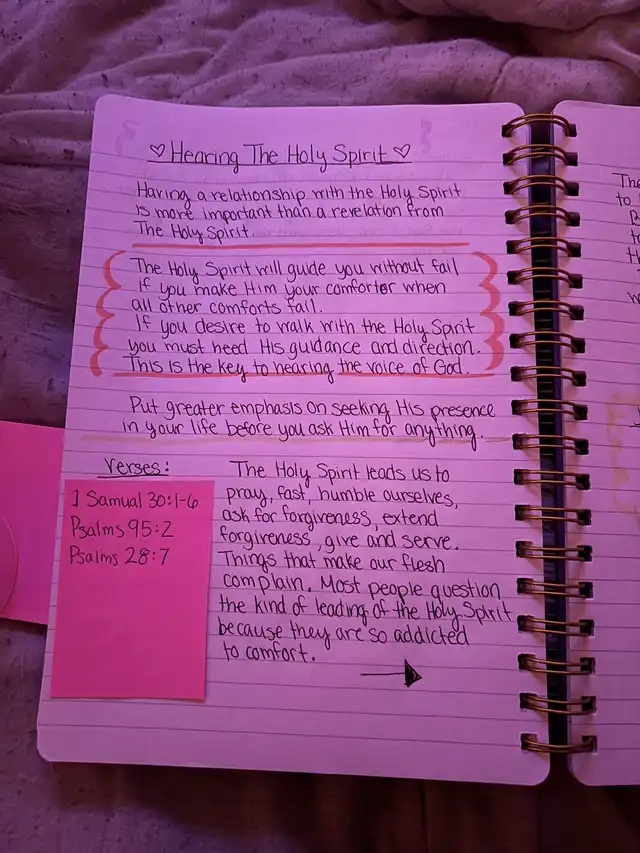 ♡Hearing The Holy Spirit♡
Having a relationship with the Holy Spirit
is more important than a revelation from
The Holy Spirit.
The Holy Spirit will guide you without fail
if you make Him your comforter when
all other comforts fail.
If you desire to walk with the Holy Spirit
you must need His guidance and direction.
This is the key to hearing the voice of God.
Put greater emphasis on seeking His presence
in your life before you ask Him for anything.
Verses:
1 Samual 30:1-6
Psalms 95:2
Psalms 28:7
The Holy Spirit leads us to
pray, fast, humble ourselves,
ask for forgiveness, extend
forgiveness, give and serve.
Things that make our flesh
complain. Most people question
the kind of leading of the Holy Spirit
because they are so addicted
to comfort.
to